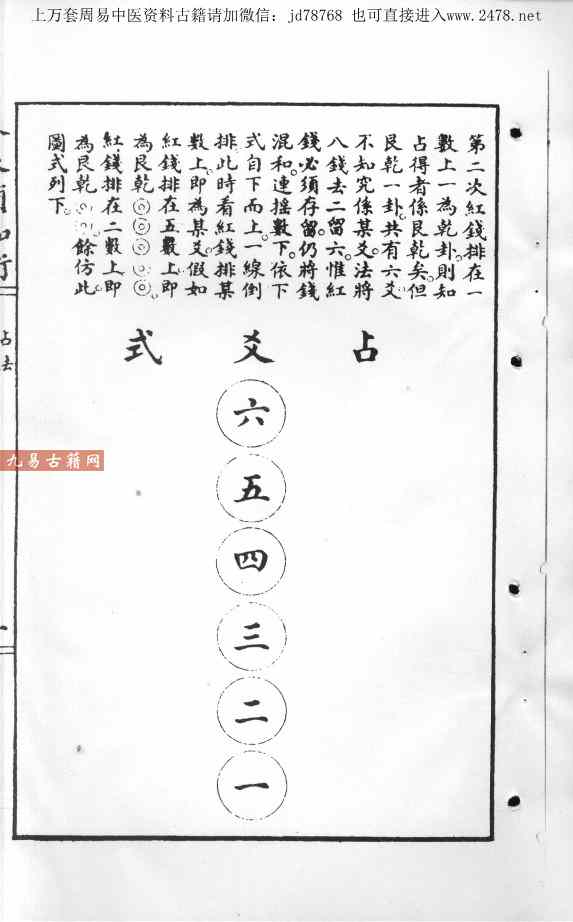 上万套周易中医资料古籍请加微信：jd78768 也可直接进入www.2478.net
第二次紅錢排在一
數上一為乾卦則知
占得者係艮乾矣但
艮乾一卦共有六爻
不知究係某爻法將
八錢去二留六惟紅
錢必須存留仍將錢
混和連搖數下依下
式自下而上一線倒
排此時看紅錢排某
數上即為某爻假如
紅錢排在五數上即
為艮乾◎◎◎◎◎
紅錢排在二數上即
為艮乾◎◎餘仿此
圖式列下
占爻式
六
五
四
三
二
一
占去
九易古籍网